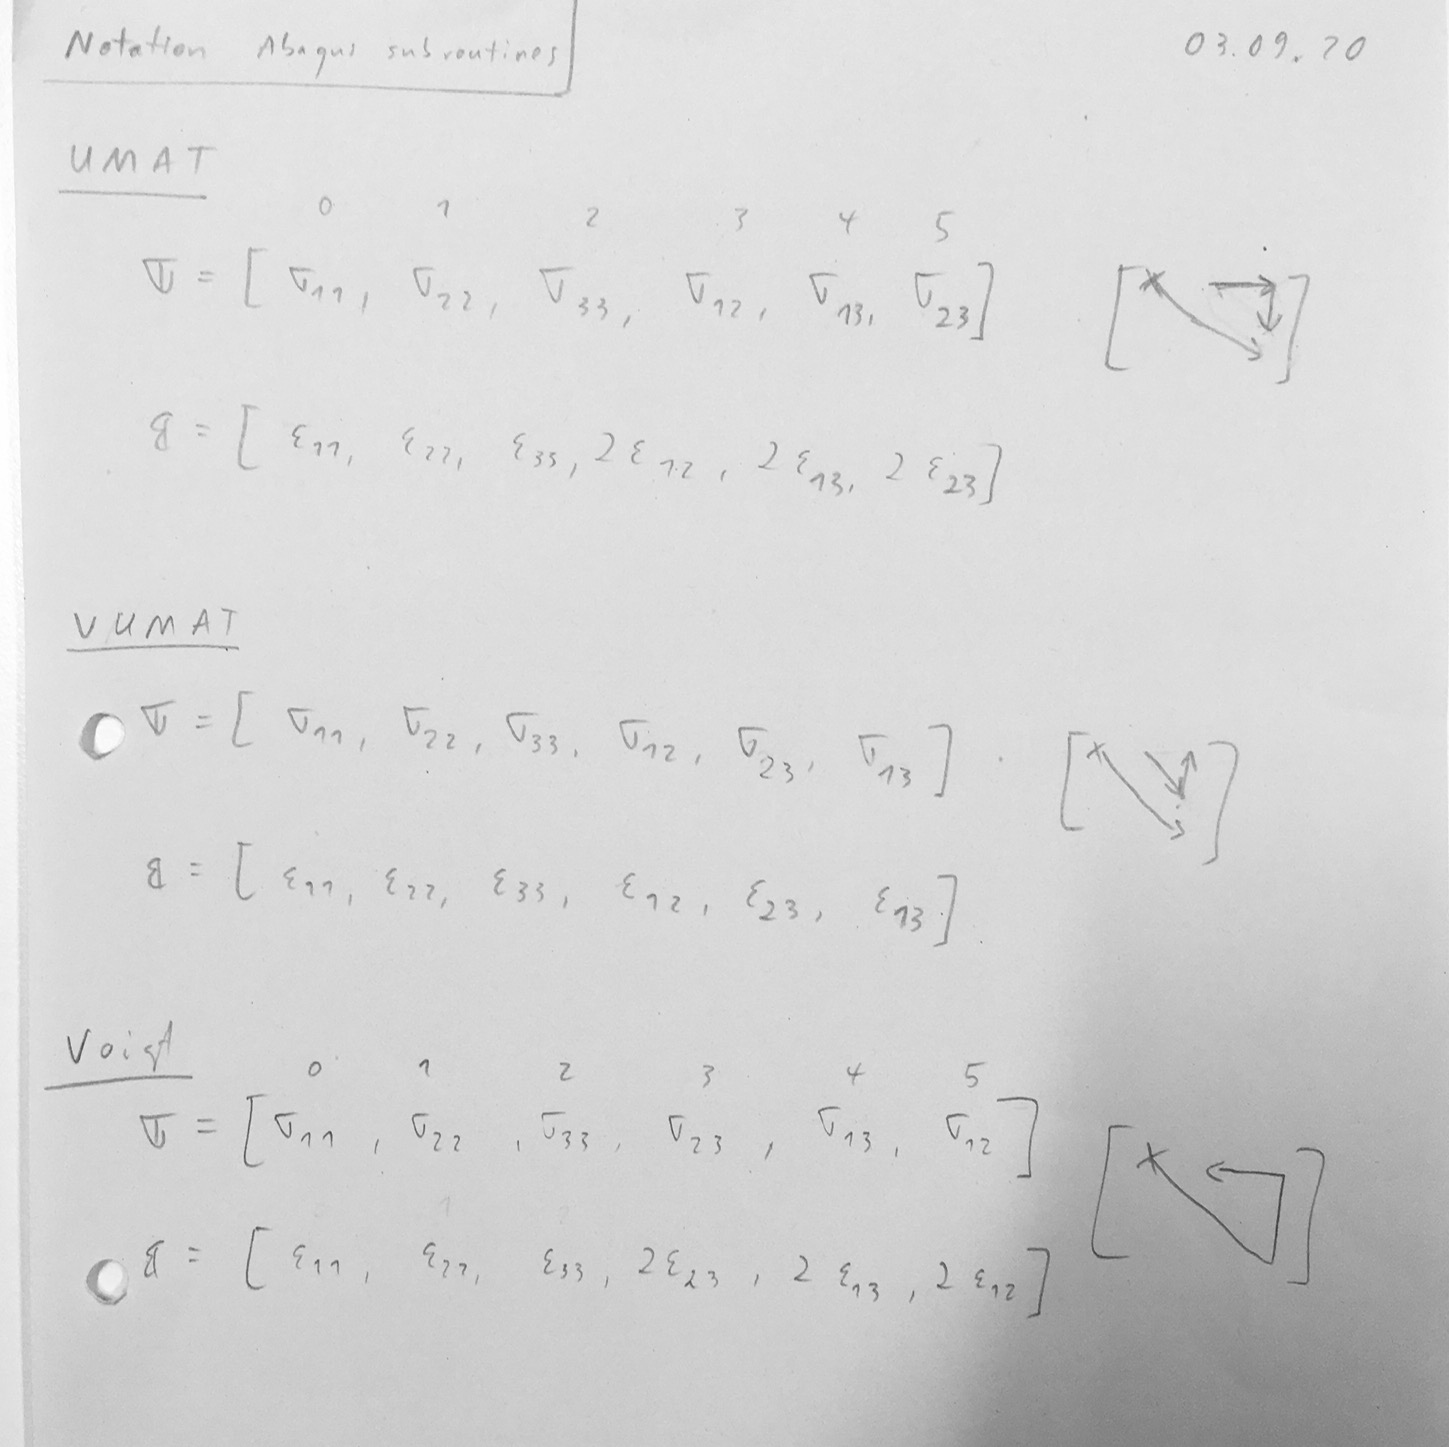 Notation Abaqus subroutines
03.09.20
UMAT
0 1 2 3 4 5
σ = [ σ11, σ22, σ33, σ12, σ13, σ23 ]
ε = [ ε11, ε22, ε33, 2 ε12, 2 ε13, 2 ε23 ]
VUMAT
σ = [ σ11, σ22, σ33, σ12, σ23, σ13 ]
ε = [ ε11, ε22, ε33, ε12, ε23, ε13 ]
Voigt
0 1 2 3 4 5
σ = [ σ11, σ22, σ33, σ23, σ13, σ12 ]
ε = [ ε11, ε22, ε33, 2ε23, 2 ε13, 2 ε12 ]